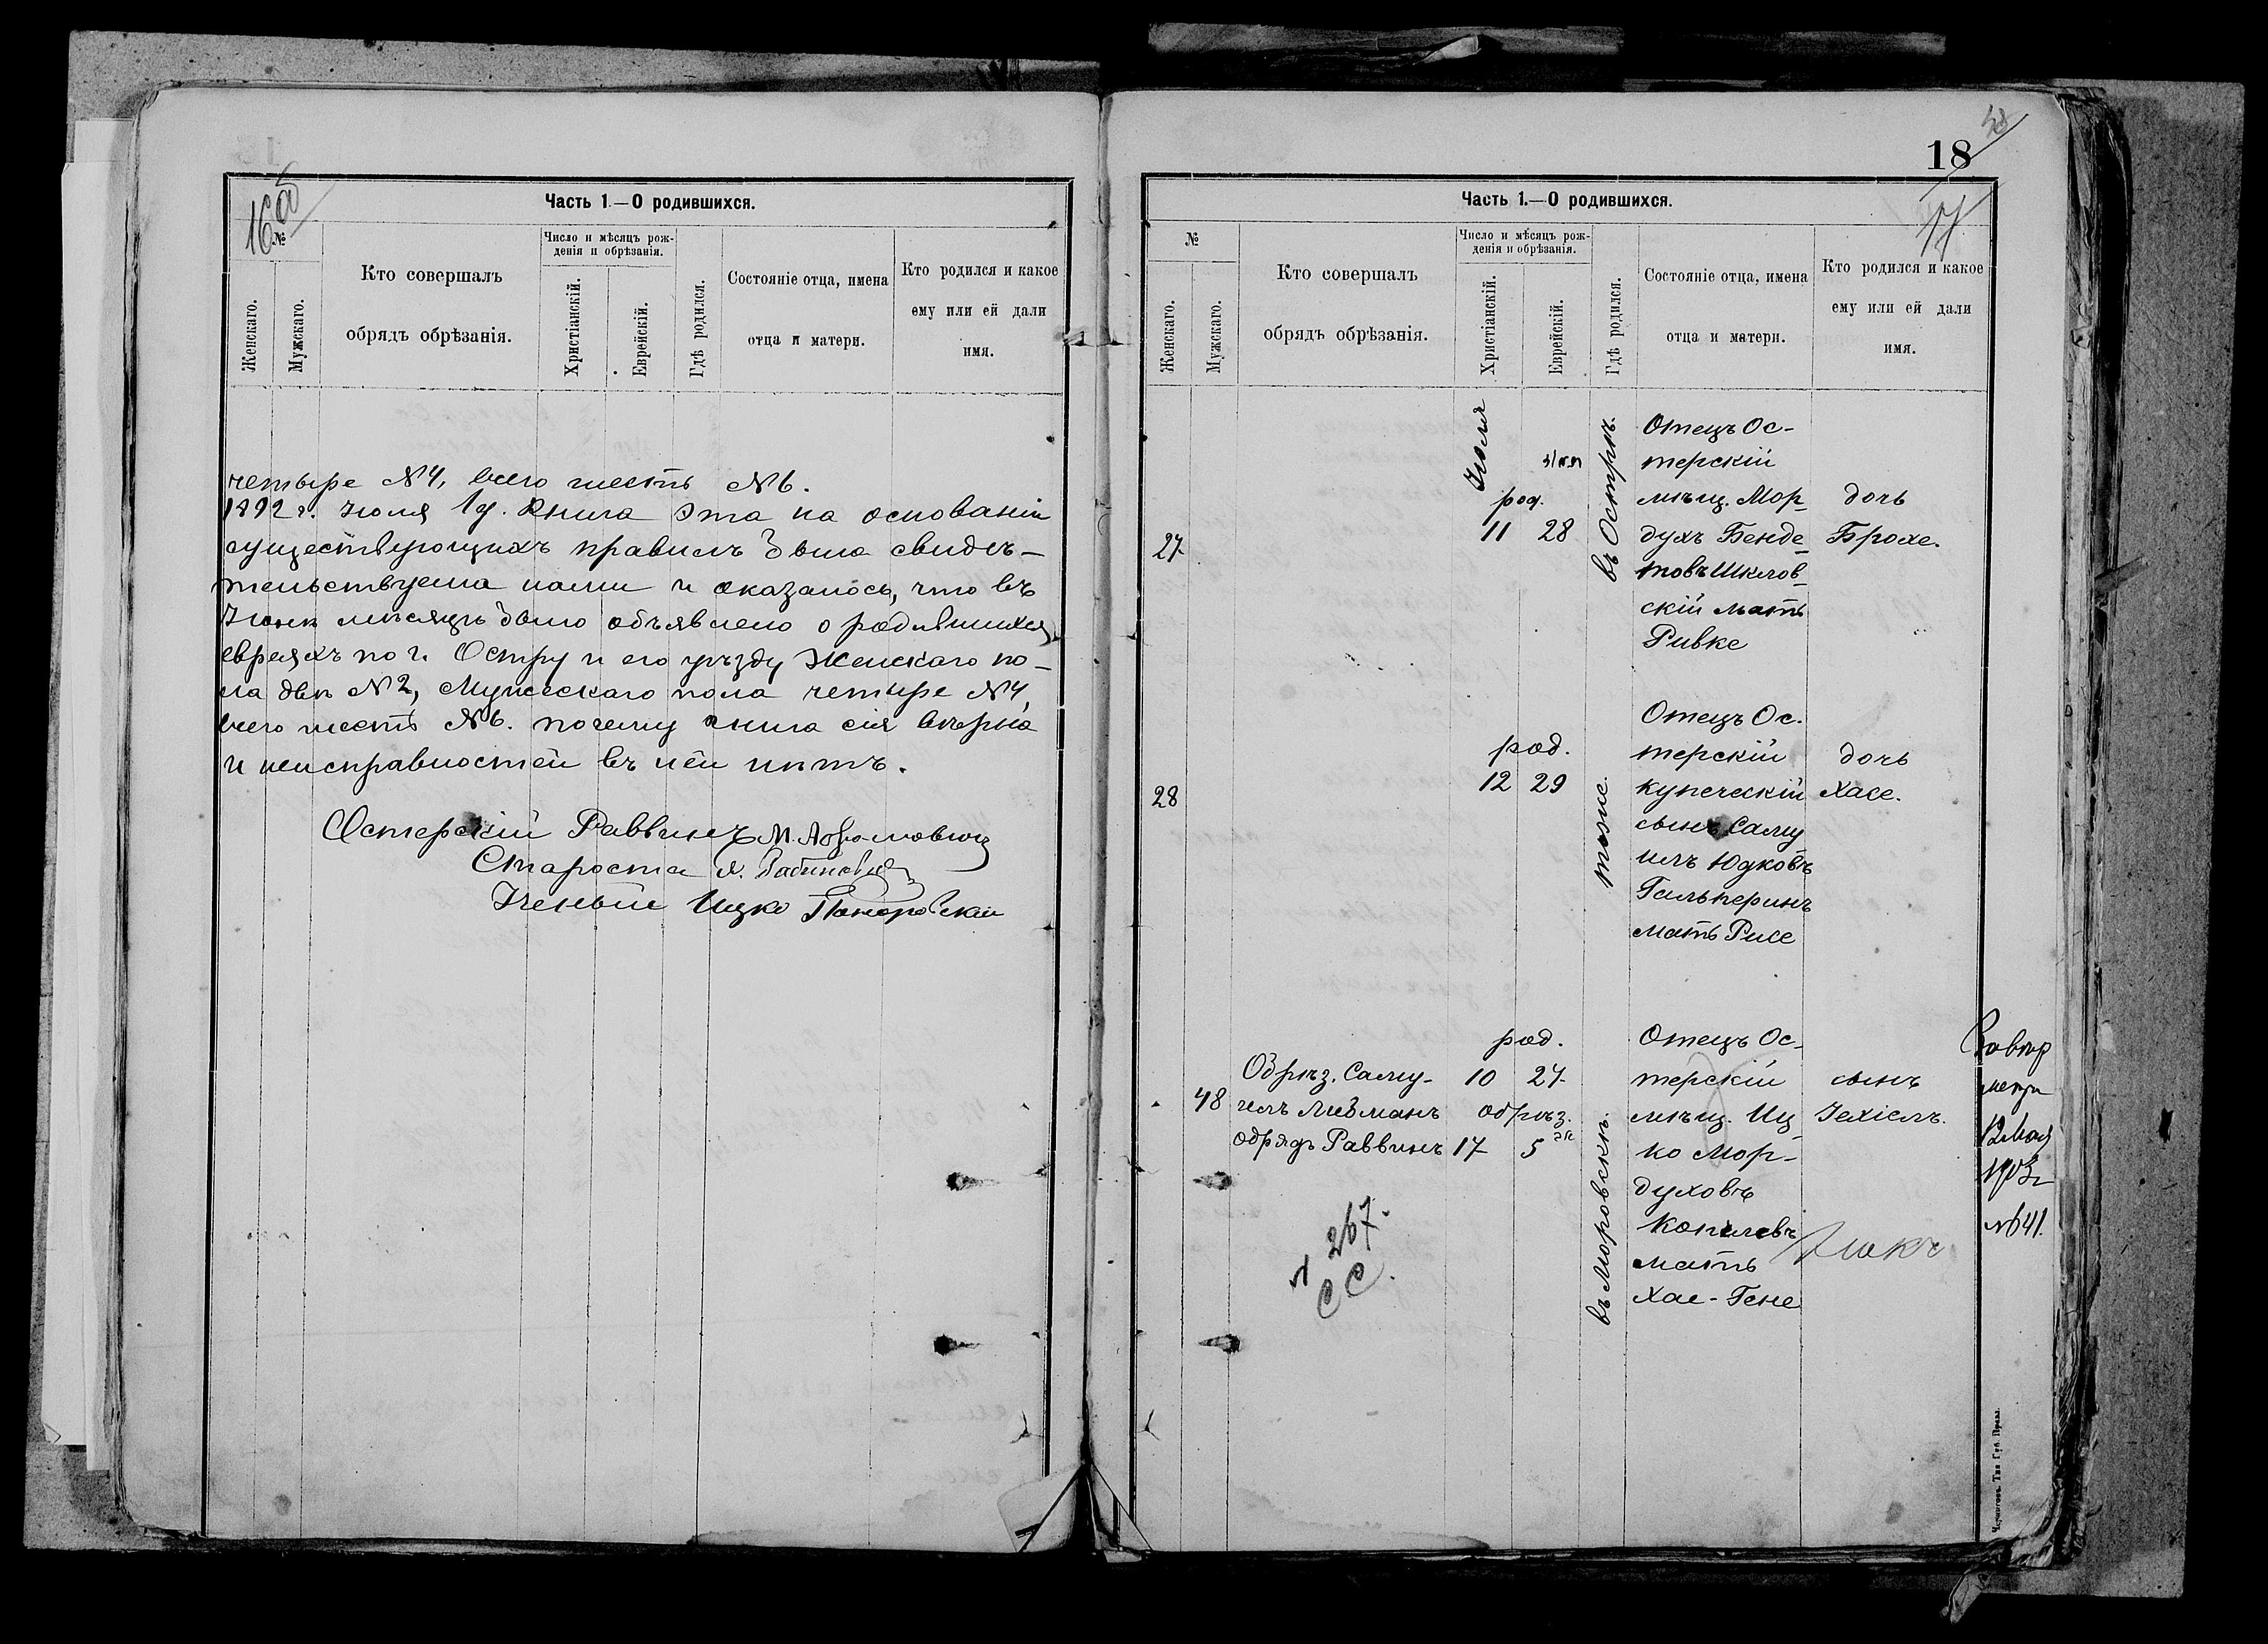 16 об
Часть 1.—О родившихся.
№
Женскаго.
Мужскаго.
Кто совершалъ
обрядъ обрѣзанія.
Число и мѣсяцъ рож-
денія и обрѣзанія.
Христіанскій.
Еврейскій.
Гдѣ родился.
Состояніе отца, имена
отца и матери.
Кто родился и какое
ему или ей дали
имя.
четыре №4, всего шесть №6.
1892 г. Іюля 1д. Книга эта на основаніи
существующихъ правилъ была свидѣ-
тельствуема нами и оказалось, что въ
Іюнѣ мѣсяцѣ было объявлено о родившихся
евреяхъ по г. Остру и его уѣзду Женскаго по-
ла двѣ №2, Мужескаго пола четыре №4,
всего шесть №6. почему книга сія вѣрна
и неисправностей въ ней нѣтъ.
Остерскій Раввинъ М. Абрамовичъ
Староста Рабиновичъ
Ученый Ицко
18
17
Часть 1.—О родившихся.
№
Женскаго.
Мужскаго.
Кто совершалъ
обрядъ обрѣзанія.
Число и мѣсяцъ рож-
денія и обрѣзанія.
Христіанскій.
Еврейскій.
Гдѣ родился.
Состояніе отца, имена
отца и матери.
Кто родился и какое
ему или ей дали
имя.
27
Іюля
род.
11 28
въ Острѣ.
Отецъ Ос-
терскій
мѣщ. Мор-
духъ Бенде-
товъ Шклов-
скій мать
Ривке
дочь
Брохе.
28
род.
12 29
тоже.
Отецъ Ос-
терскій
купеческій
сынъ Саму
илъ Юдковъ
Гальперинъ
мать Рисе
дочь
Хасе.
48
Обрѣз. Саму-
илъ Либманъ
обрядъ Раввинъ
род.
10 27
обрѣз.
17 5
въ Моровскѣ.
Отецъ Ос-
терскій
мѣщ. Иц
ко Мор-
духовъ
Копилевъ
мать
Хае-Гене
сынъ
Іехіелъ.
12 Мая
1903г
№641.
267.
СС.
Черниговъ. Тип. Губ. Правл.